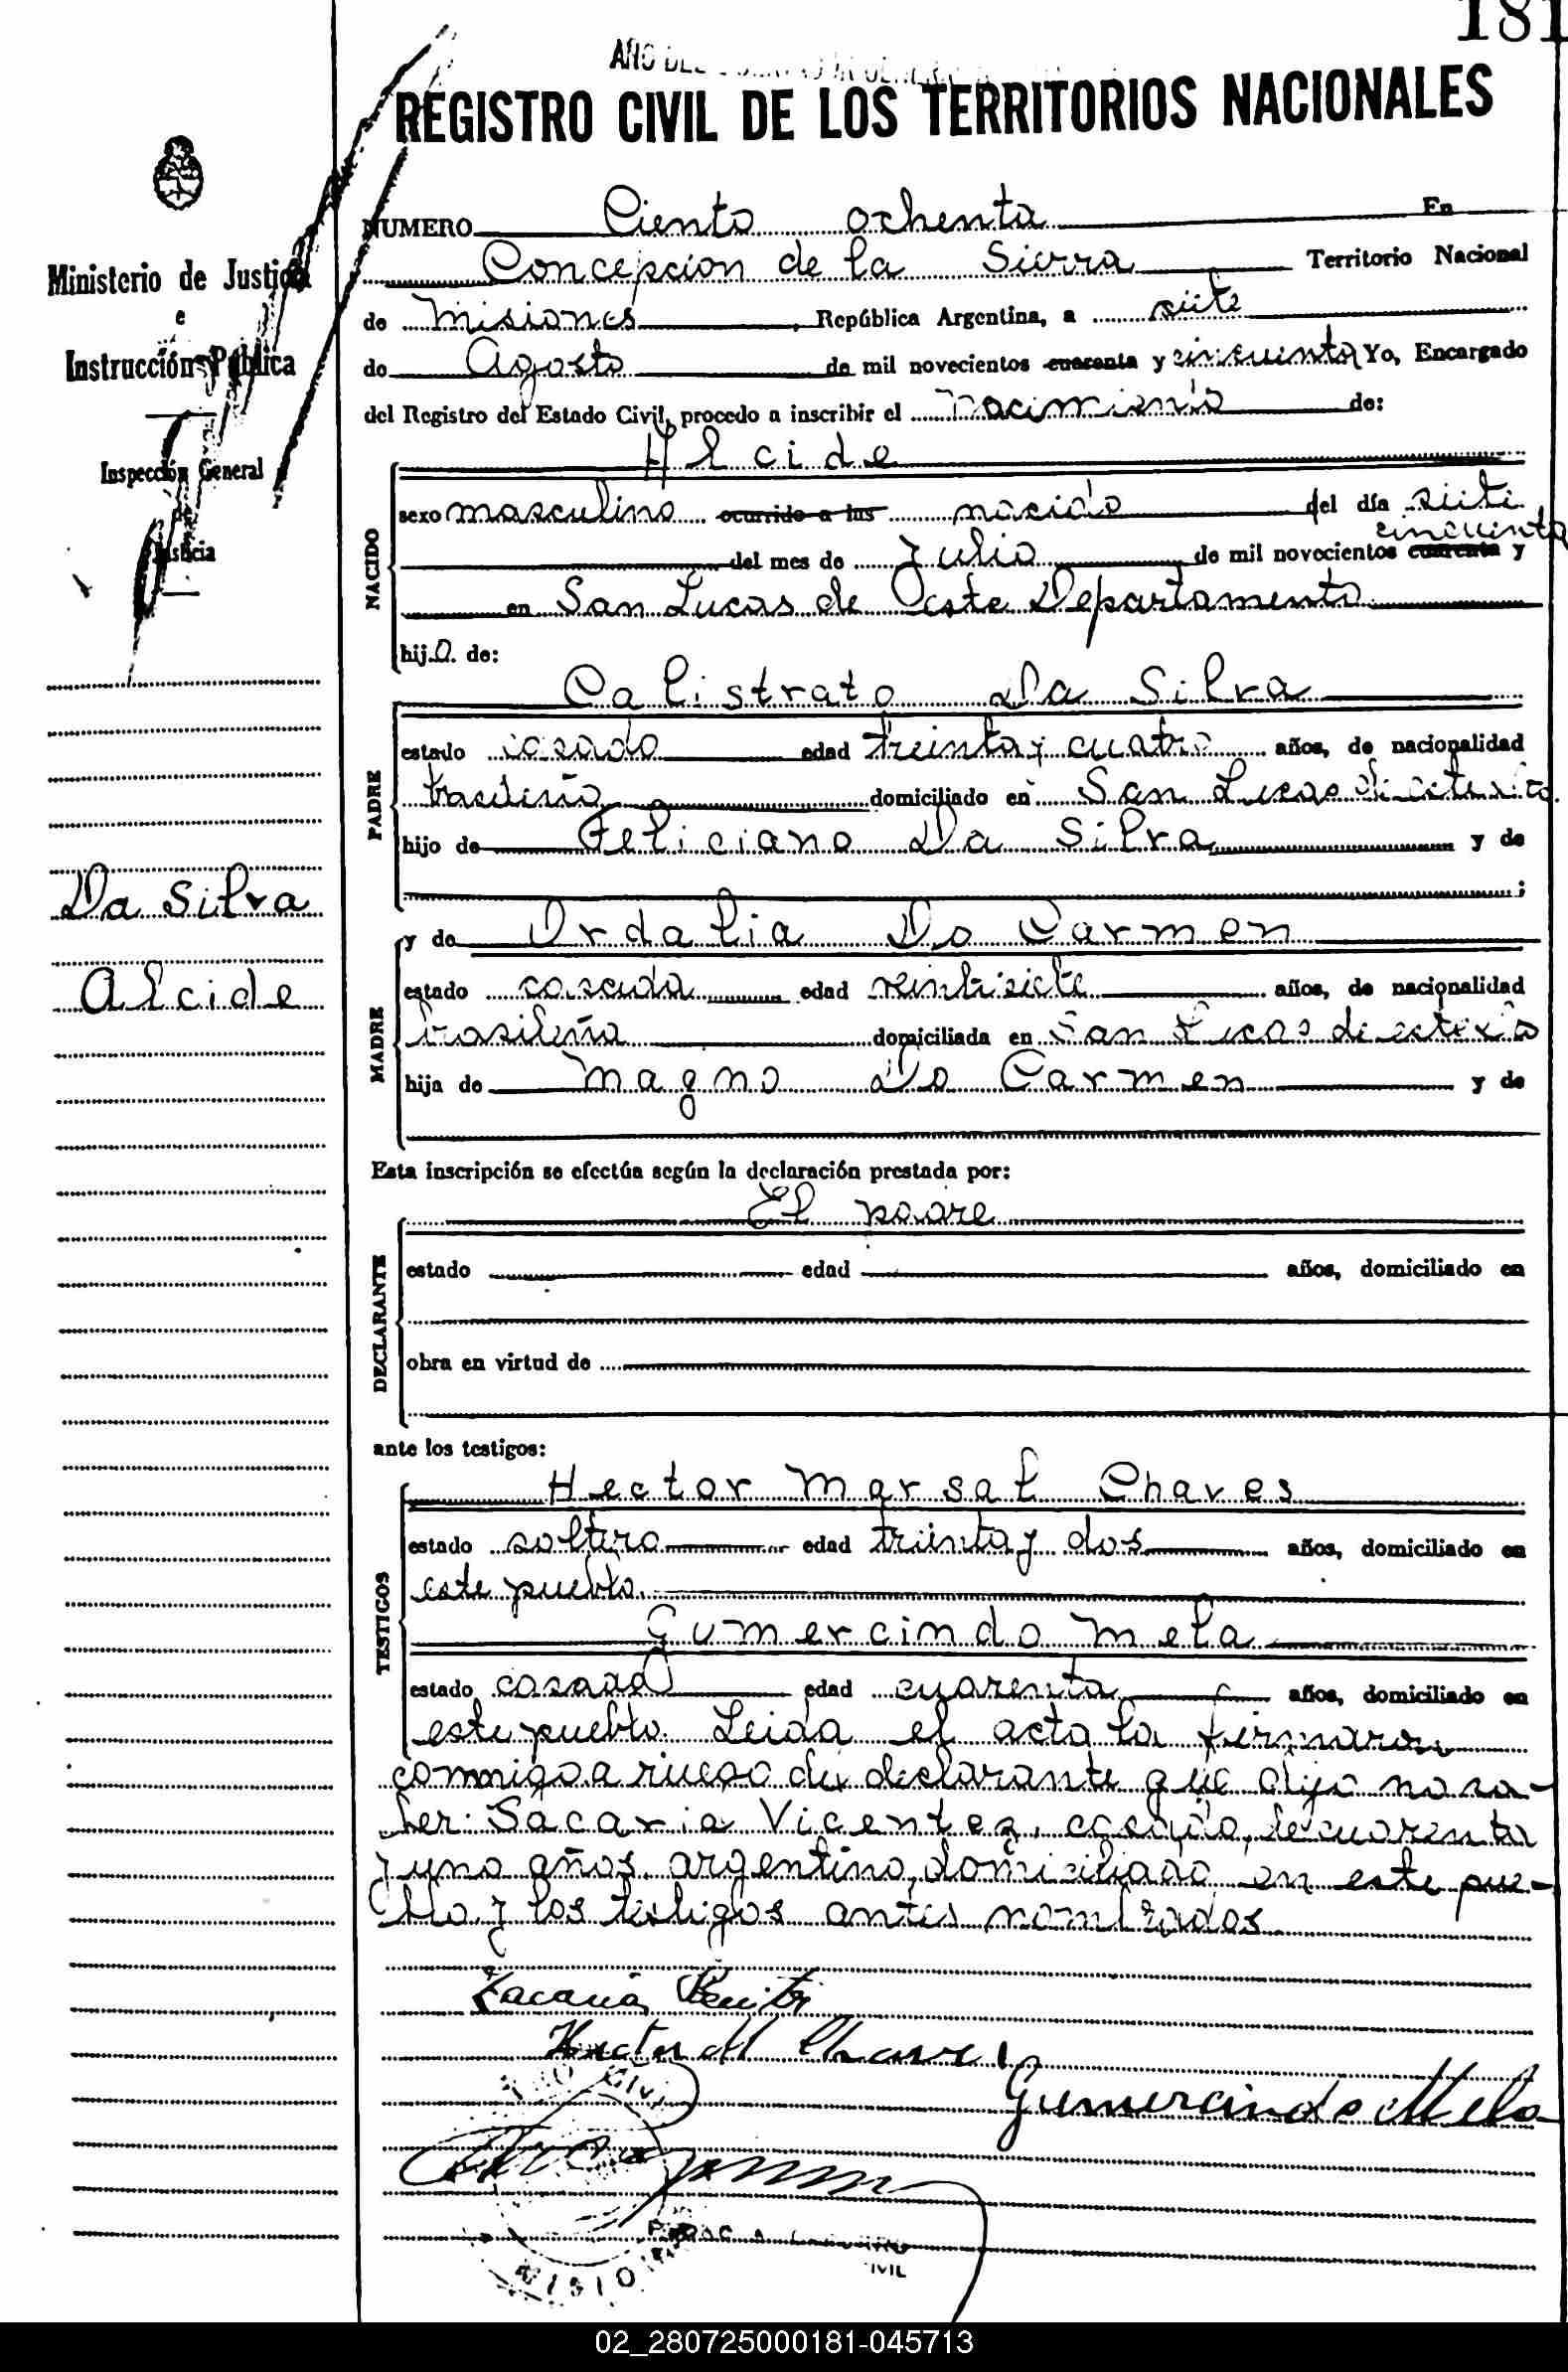 181
AÑO DEL
REGISTRO CIVIL DE LOS TERRITORIOS NACIONALES
NUMERO Ciento ochenta En
Concepcion de la Sierra Territorio Nacional
de Misiones, República Argentina, a siete
de Agosto de mil novecientos cuarenta y cincuenta Yo, Encargado
del Registro del Estado Civil, procedo a inscribir el nacimiento de:
Ministerio de Justicia
e
Instrucción Pública
Inspección General
de
Justicia
Da Silva
Alcide
NACIDO
Alcide
sexo masculino ocurrido a las nacido del día siete
cincuenta
del mes de Julio de mil novecientos cuarenta y
en San Lucas de Oeste Departamento
hijo de:
PADRE
Calistrato Da Silva
estado casado edad treinta y cuatro años, de nacionalidad
brasileño domiciliado en San Lucas de este
hijo de Feliciano Da Silva y de
;
MADRE
y de Ordalia Do Carmen
estado casada edad veintisiete años, de nacionalidad
brasileña domiciliada en San Lucas de este
hija de Magno Do Carmen y de
Esta inscripción se efectúa según la declaración prestada por:
DECLARANTE
El padre
estado edad años, domiciliado en
obra en virtud de
ante los testigos:
TESTIGOS
Hector Marsal Chaves
estado soltero edad treinta y dos años, domiciliado en
este pueblo.
Gumercindo Mela
estado casado edad cuarenta años, domiciliado en
este pueblo. Leida el acta la firmaron
conmigo a ruego del declarante que dijo no sa-
ber: Sacaria Vicentez, casado, de cuarenta
y uno años, argentino, domiciliado en este pue-
blo y los testigos antes nombrados
Zacaria Benitz
Hector M Chaves
Gumercindo Mela
CIVIL
MISIO
02_280725000181-045713